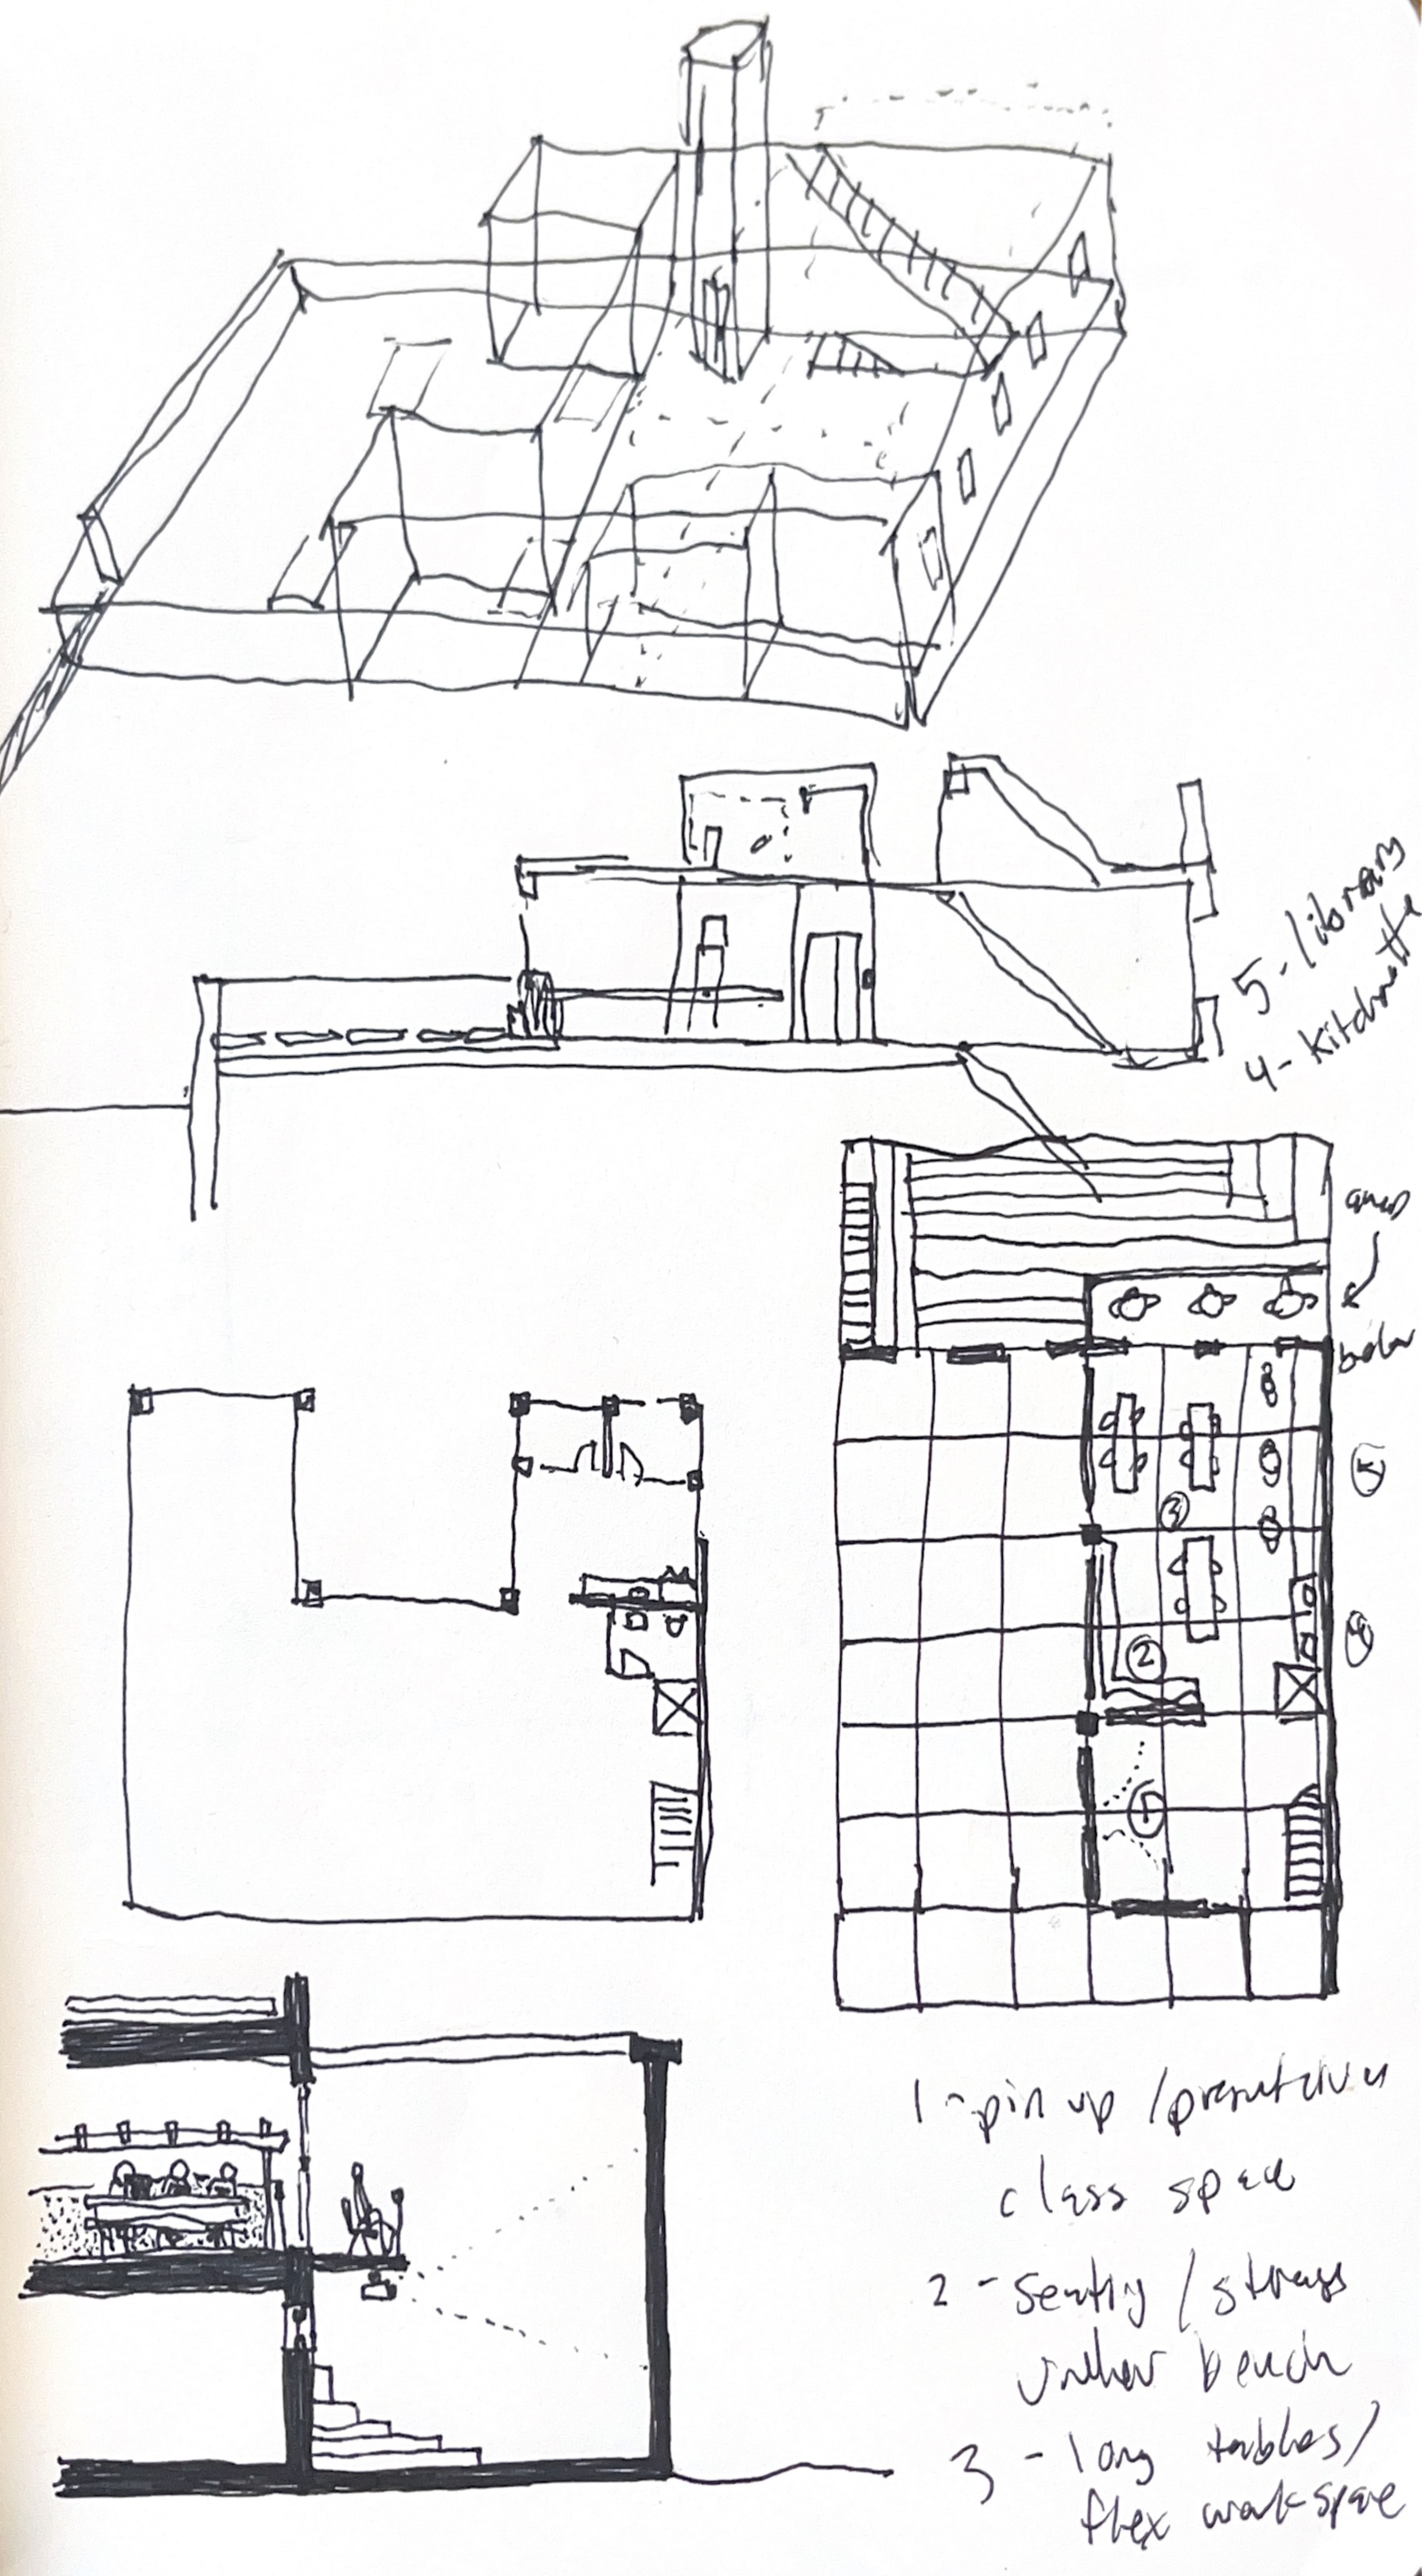 5 - library
4 - kitchenette
5
3
4
2
1
1 - pin up /
class space
2 - seating / storage
under bench
3 - long tables/
flex workspace